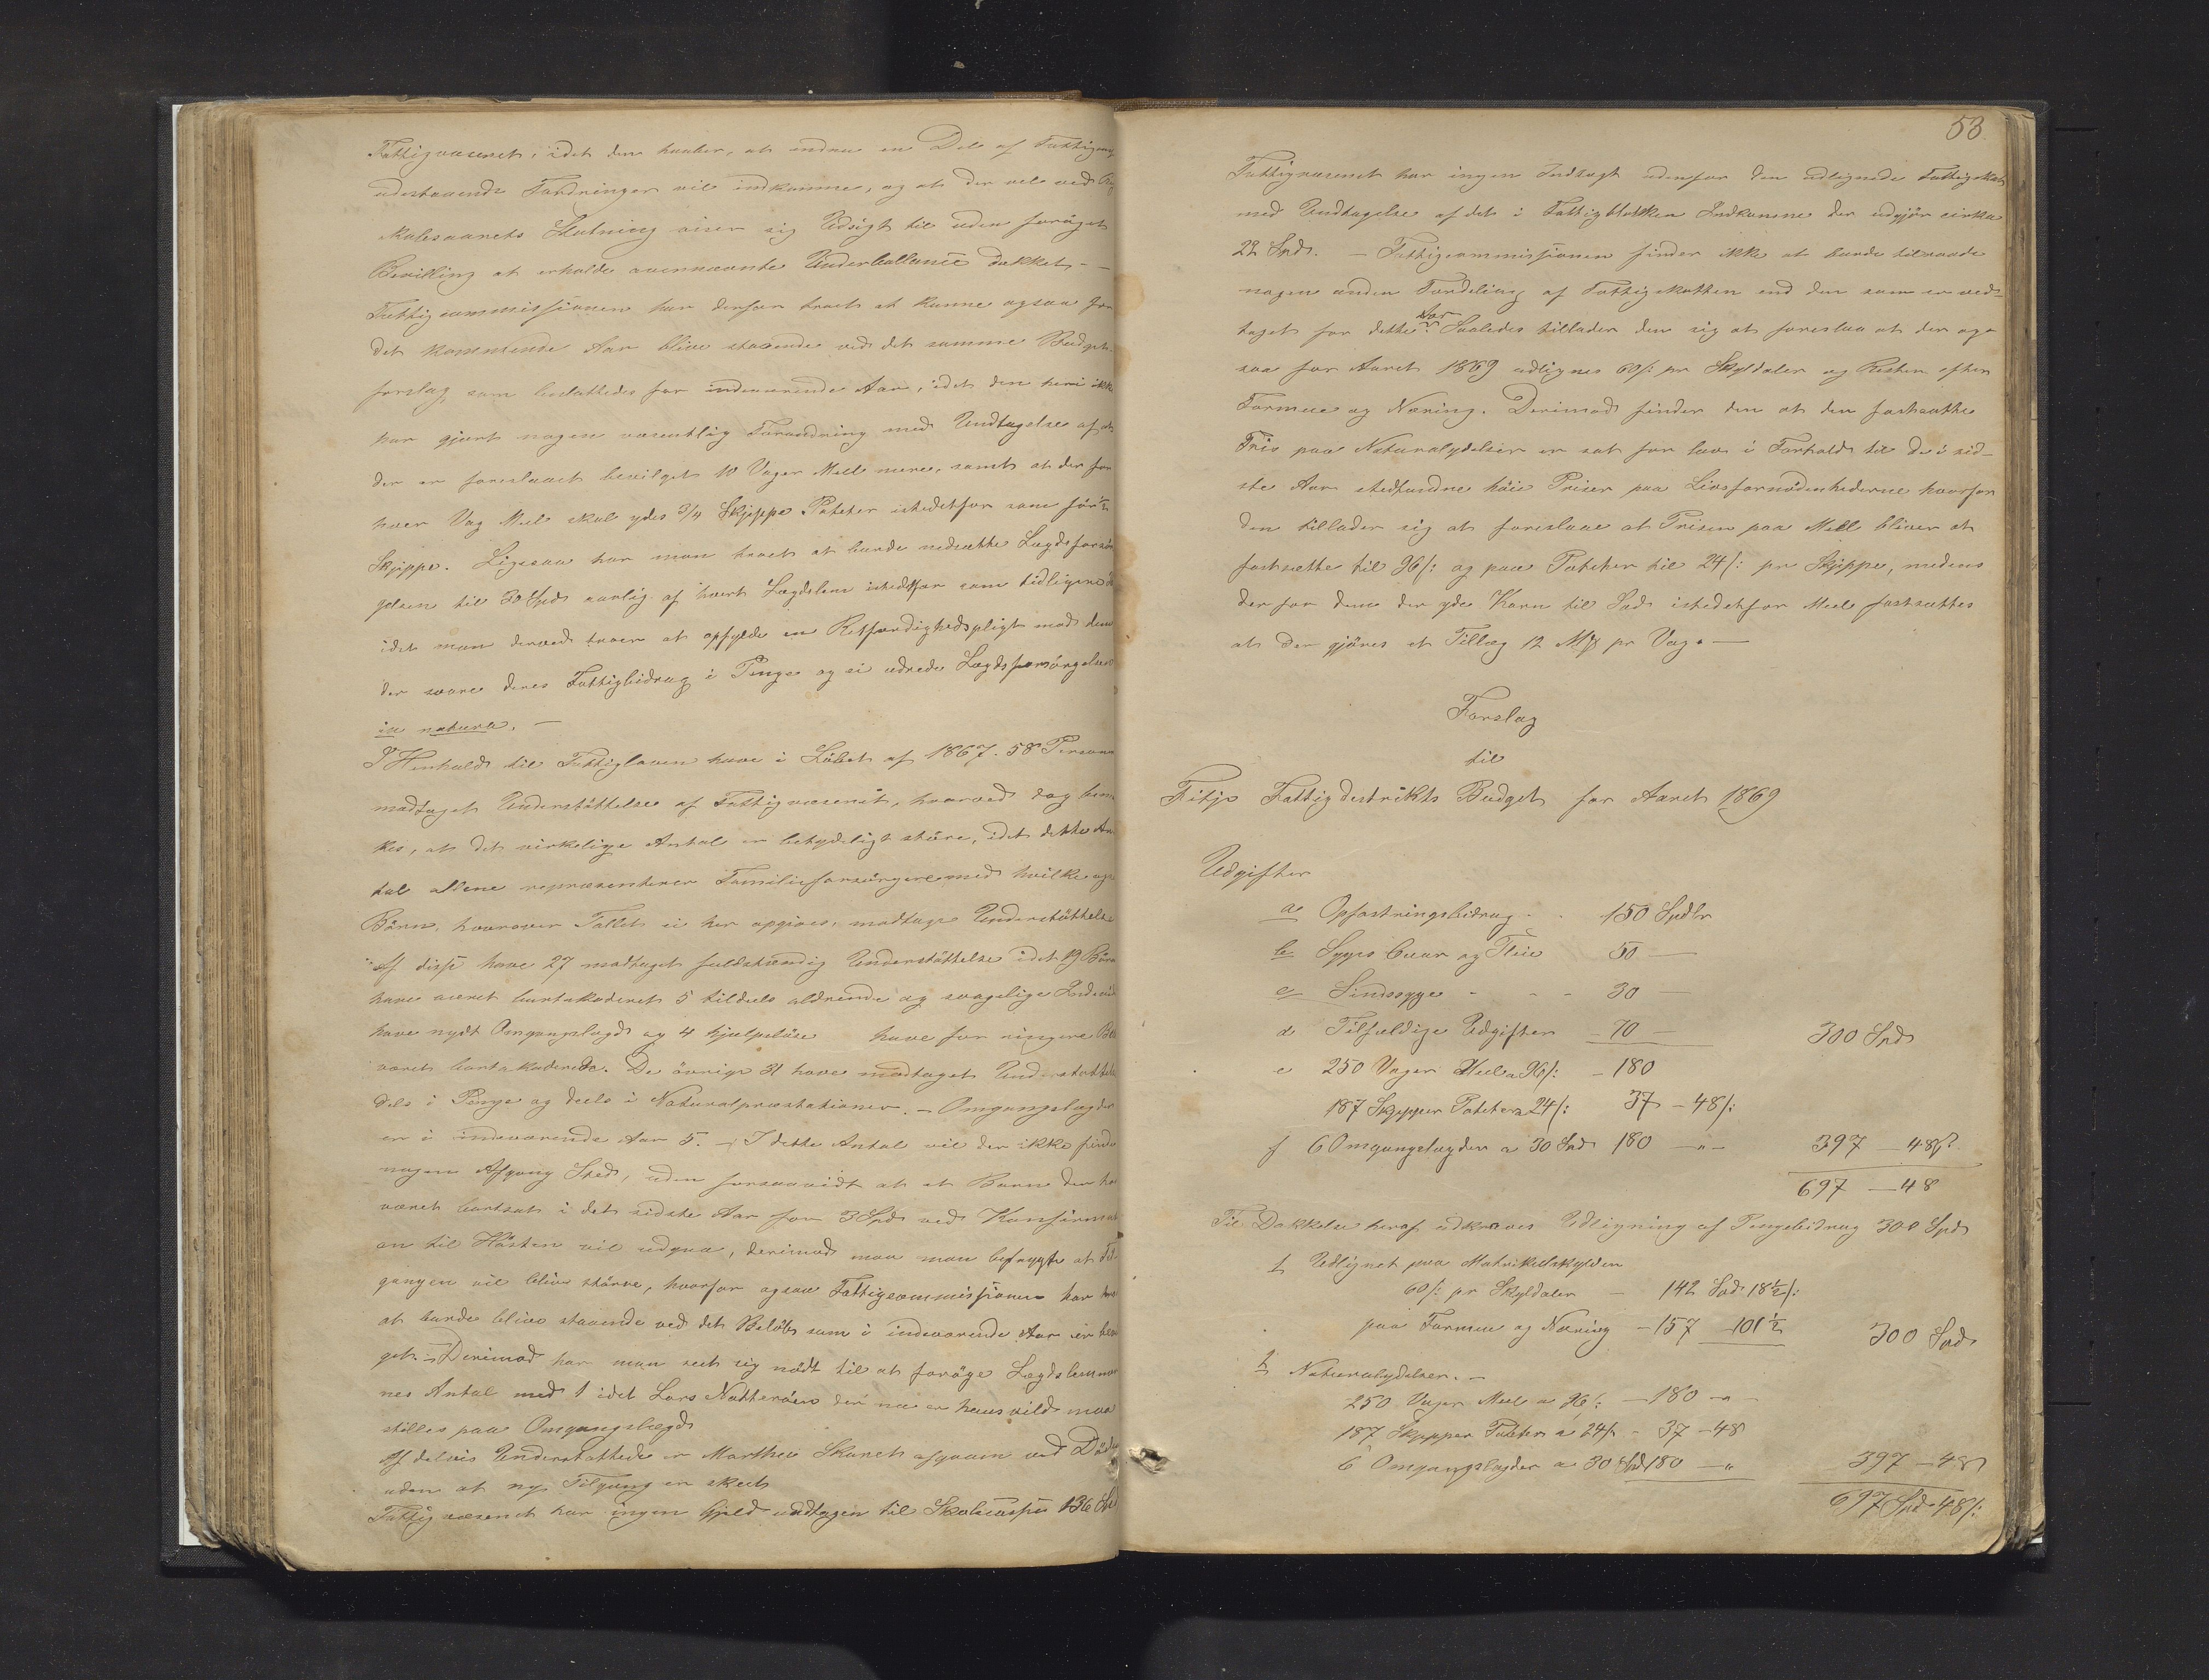 Fattigvæsenet, idet den haaber, at endnu en Del af Fattigv.
udestaaende Fordringer vil indkomme, og at der vel ved
Skolesaarets Slutning viser sig Udsigt til uden forøget
Bevilling at erholde ovennævnte Underballance dækket. —
Fattigcommissionen har derfor troet at kunne ogsaa for
det kommende Aar blive staaende ved det samme Budget-
forslag som besluttedes for indeværende Aar, idet den heri ikke
har gjort nogen væsentlig Forandring med Undtagelse af at
der er foreslaaet bevilget 10 Vager Meel mere, samt at der for
hver Vag Meel skal ydes 3/4 Skjeppe Poteter istedetfor som før ½
Skjeppe. Ligesaa har man troet at burde nedsætte Lægdsforsør
gelsen til 30 Spd aarlig af hvert Lægdslem istedetfor som tidligere
idet man derved troer at opfylde en Retfærdighedspligt mod dem
der svare deres Fattigbidrag i Penge og ei udrede Lægdsforsørgelsen
in natura. —
I Henhold til Fattigloven have i Løbet af 1867. 58 Personer
modtaget Understøttelse af Fattigvæsenet, hvorved dog bemær
kes, at det virkelige Antal er betydeligt større, idet dette An
tal allene repræsenterer Familieforsørgere med hvilke og
Børn, hvorover Tallet ei her opgives, modtage Understøttelse
Af disse have 27 modtaget fuldstændig Understøttelse idet 19 Børn
have været bortakorderet 5 tildeels aldrende og svagelige Individ
have nydt Omgangslægd og 4 hjælpeløse have for ringere Be
været bortakorderede. De øvrige 31 have modtaget Understøttelse
dels i Penge og deels i Naturalpræstationer. — Omgangslægder
er i indeværende Aar 5. — I dette Antal vil der ikke finde
nogen Afgang Sted, uden forsaavidt at et Barn der har
været bortsat i det sidste Aar for 3 Spd ved Konfirmati
on til Høsten vil udgaa, derimod maa man befrygte at Til-
gangen vil blive større, hvorfor ogsaa Fattigcommissionen har troet
at burde blive staaende ved det Beløb som i indeværende Aar er bevil
get. — Derimod har man seet sig nødt til at forøge Lægdslemmer
nes Antal med 1 idet Lars Notterøen der nu er huusvild maa
stilles paa Omgangslægd
Af delvis Understøttede er Marthe Skaret afgaaen ved Døden
uden at ny Tilgang er skeet
Fattigvæsenet har ingen Gjeld undtagen til Skolecassen 136 Spd
53.
Fattigvæsenet har ingen Indtægt udenfor den udlignede Fattigskat
med Undtagelse af det i Fattigblokken Indkomne der udgjør cirka
22 Spd. — Fattigcommissionen finder ikke at burde tilraade
nogen anden Fordeling af Fattigskatten end den som er ved-
taget for dette Aar. Saaledes tillader den sig at foreslaa at der og-
saa for Aaret 1869 udlignes 60 /: pr Skyldaler og Resten efter
Formue og Næring. Derimod finder den at den fastsatte
Priis paa Naturalydelser er sat for lav i Forhold til de i sid-
ste Aar stedfundne høie Priser paa Livsfornødenhederne hvorfor
den tillader sig at foreslaae at Prisen paa Meel bliver at
fastsætte til 96 /: og paa Poteter til 24 /: pr Skjeppe, medens
der for dem der yde Korn til Sæd istedetfor Meel fastsættes
at der gjøres et Tillæg 12 M℔ pr Vog. —
Forslag
til
Fitje Fattigdistrikts Budget for Aaret 1869
Udgifter
a Opfostringsbidrag - - 150 Spdlr
b Syges Cuur og Pleie 50 —
c Sindssyge - - - 30 —
d Tilfældige Udgifter — 70 — 300 Spd
e 250 Vager Meel a 96 /: — 180
187 Skjepper Poteter a 24 /: 37 — 48 /:
f 6 Omgangslægder a 30 Spd 180 — " — 397 — 48 /:
697 — 48
Til Dækkelse heraf udkræves Udligning af Pengebidrag 300 Spd
1 Udlignet paa Matrikelskylden
60 /: pr Skyldaler — 142 Spd 18½ /:
paa Formue og Næring — 157 101½ 300 Spd
2 Naturalydelser. —
250 Vager Meel a 96 /: — 180 — " —
187 Skjepper Poteter a 24 /: - 37 — 48
6 Omgangslægder a 30 Spd 180 — " 397 — 48
697 Spd 48 /: